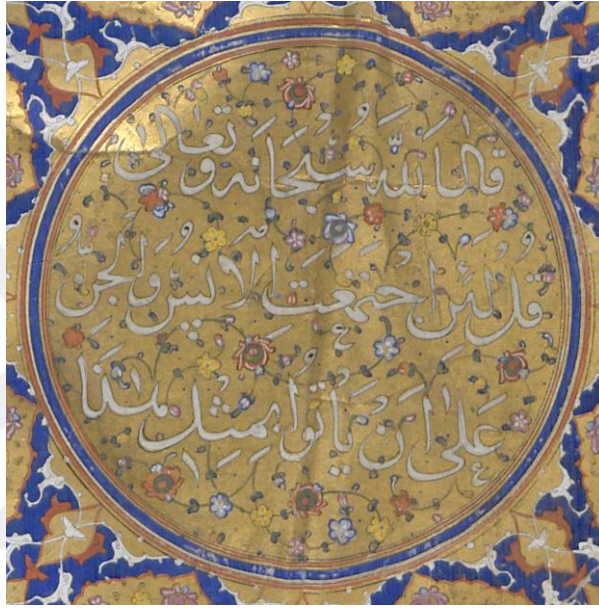 قال الله سبحانه وتعالى
قل لئن اجتمعت الانس والجن
على ان يأتوا بمثل هذا